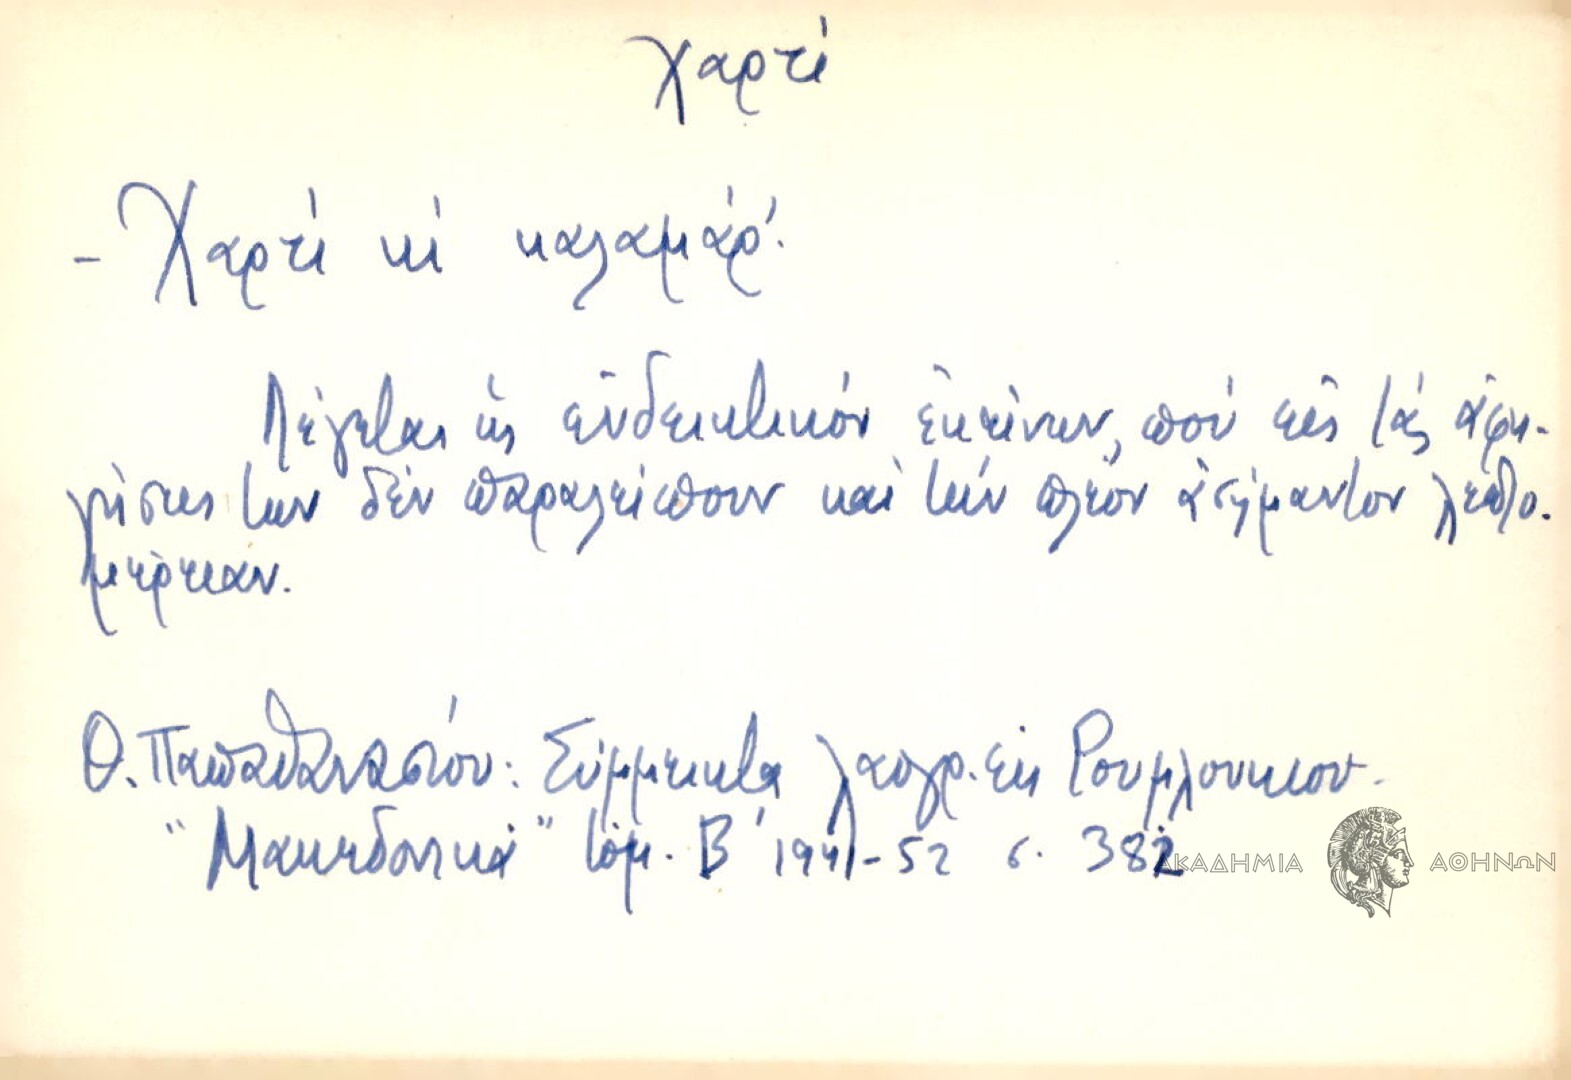 Χαρτί
- Χαρτί κί καλαμάρ'.
Λέγεται ὡς ἐνδεικτικόν ἐκείνων, πού εἰς τάς ἀφη-
γήσεις των δέν παραλείπουν καί τήν πλέον ἀσήμαντον λεπτο-
μέρειαν.
Θ. Παπαθανασίου: Σύμμεικτα λαογρ. ἐκ Ρουμλουκίου.
"Μακεδονικά" τόμ. Β' 1941-52 σ. 382
ΑΚΑΔΗΜΙΑ ΑΘΗΝΩΝ